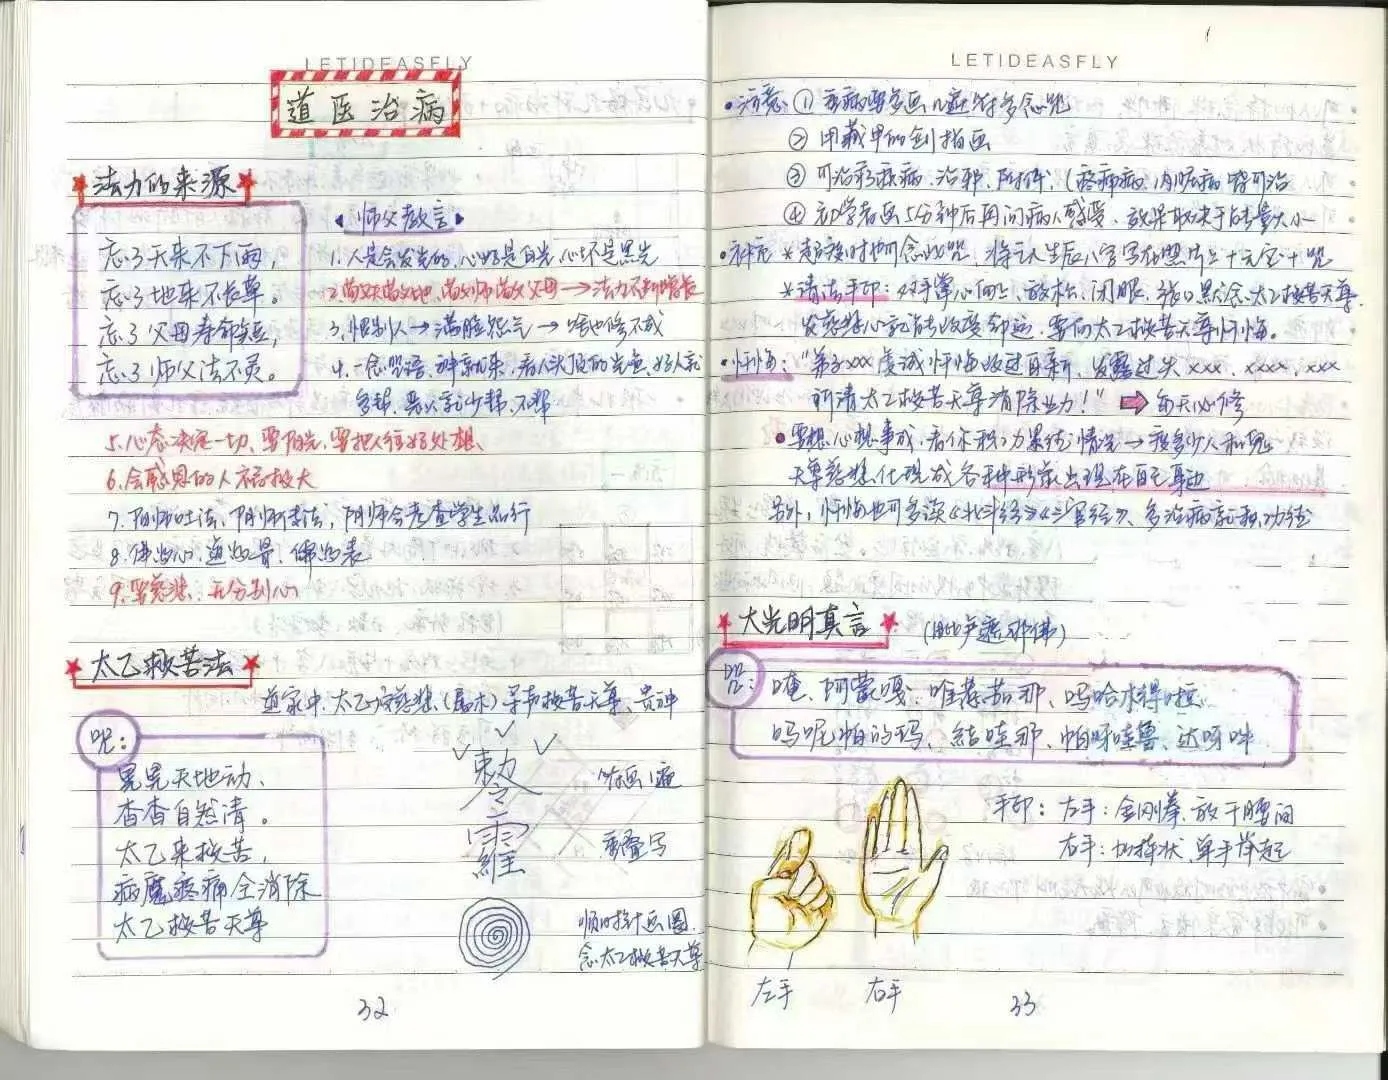 LETIDEASFLY
道医治病
法力的来源
忘了天来不下雨，
忘了地来不长草。
忘了父母寿命短，
忘了师父法不灵。
师父教言
1.人是会发光的，心好是白光，心坏是黑光
2.尚天尚地、尚师尚父母→法力不断增长
3.恨别人→满脸怨气→啥也修不成
4.一念咒语，神就来，看人头顶的光，好人就
多帮，恶人就少帮、不帮
5.心态决定一切，要阳光，要把人往好处想、
6.会感恩的人福报大
7.阴师吐法、阴师考查学生品行
8.道为骨、佛为表
9.要慈悲、无分别心
太乙救苦法
道家中，太乙最慈悲，(属木)寻声救苦天尊、贵神
咒：
晃晃天地动、
杳杳自然清。
太乙来救苦，
病魔疼痛全消除
太乙救苦天尊
敕令
你画1遍
重叠写
顺时针画圈
念太乙救苦天尊
32
LETIDEASFLY
注意：① 重病要多画几遍 多念咒
② 用藏甲的剑指画
③ 可治疼痛病、治邪、附体、(疼痛病、内脏病皆可治
④ 初学者画5分钟后再问病人感受，效果取决于能量大小
补充 *超度时也可念此咒，将亡人生辰八字写在照片上+元宝+咒
*请法手印：双手掌心向上、放松、闭眼、张口默念太乙救苦天尊
发慈悲心就能改变命运，要向太乙救苦天尊忏悔。
忏悔："弟子xxx虔诚忏悔改过自新，发露过失xxx、xxxx、xxx
祈请太乙救苦天尊消除业力！" ➡ 每天必修
要想心想事成，看你积功累德情况→度多少人和鬼
天尊慈悲，化现成各种形象出现在自己身边
另外，忏悔也可多读《北斗经》《三官经》、多治病就积功德
大光明真言
(毗卢遮那佛)
咒：
唵、阿蒙嘎、唯菩茄那、吗哈木得啦
吗呢帕的玛、结哇那、帕呀哇鲁、达呀吽
手印：左手：金刚拳，放于腰间
右手：如掌状，单手举起
左手
右手
33